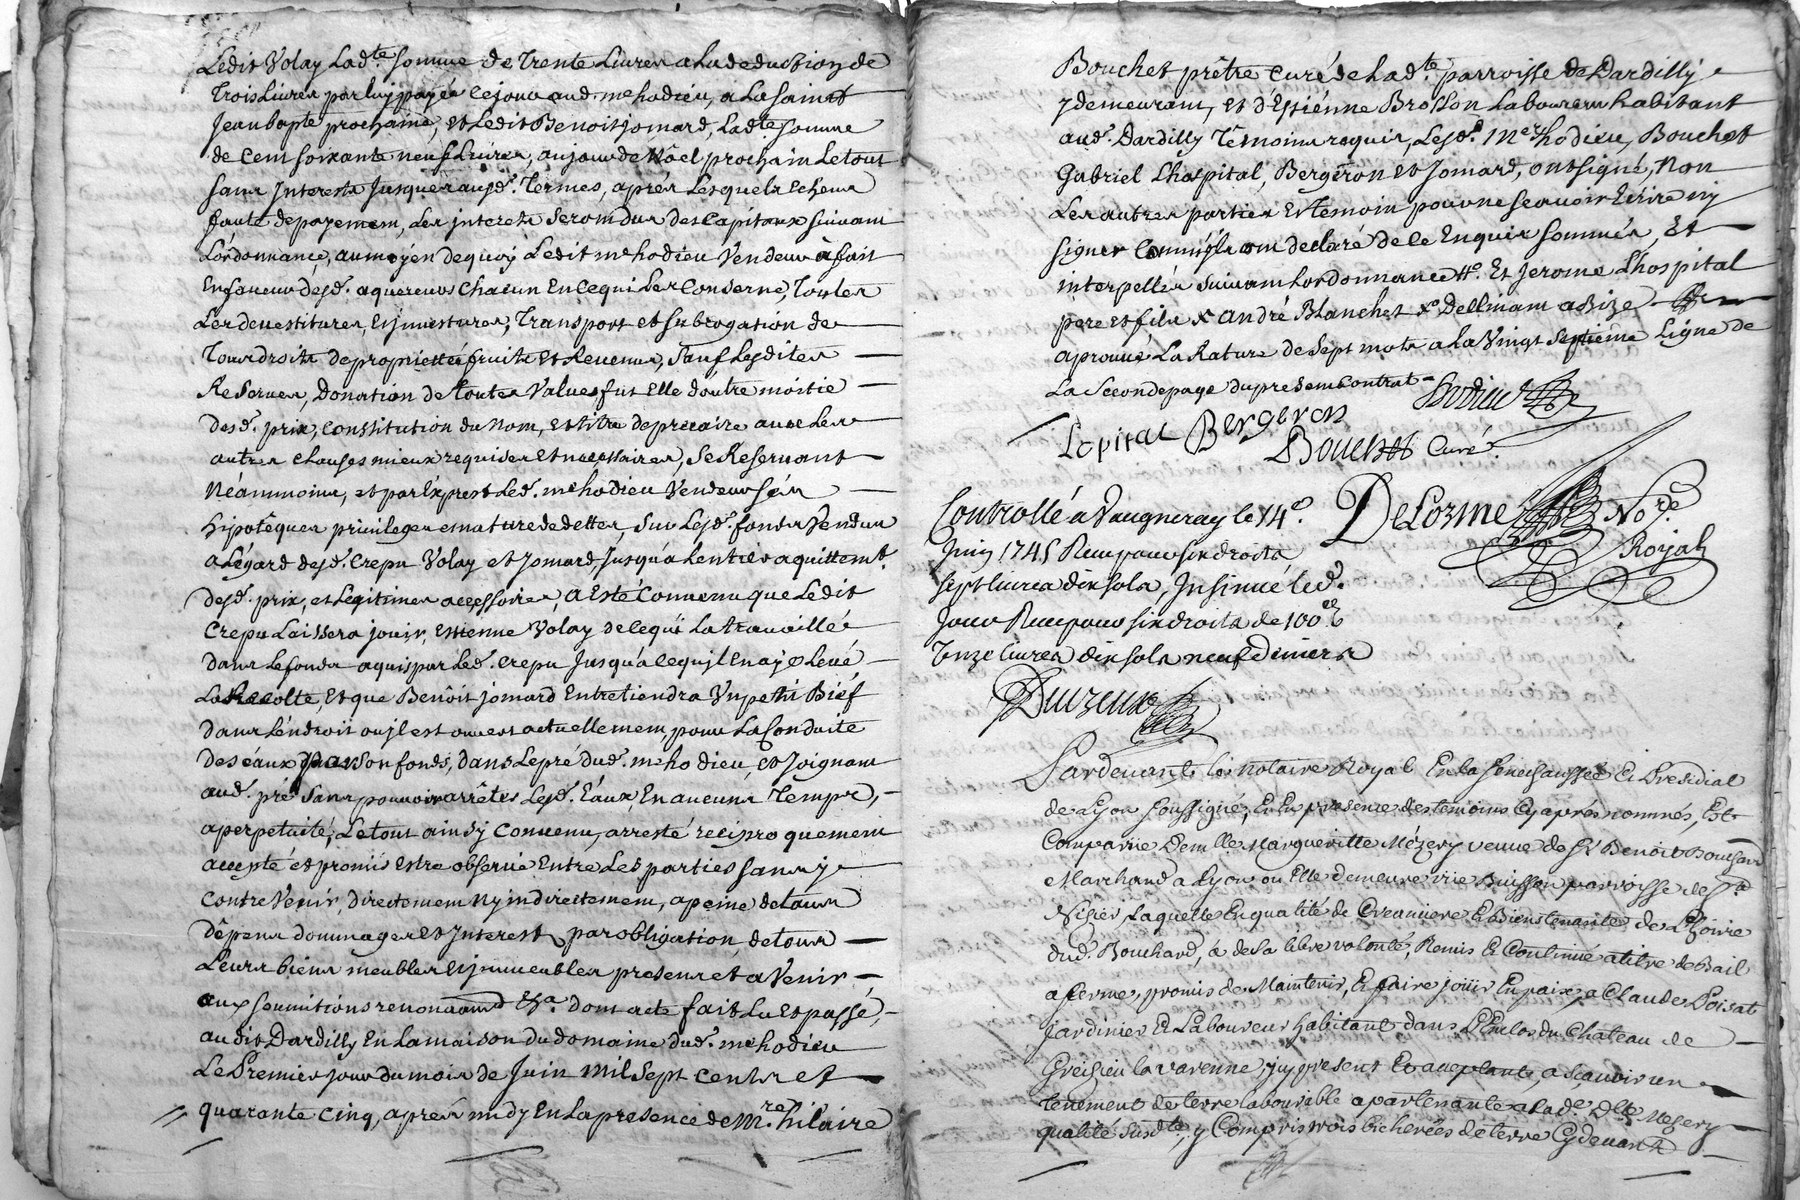 Ledit Volay Ladte somme de Trente Livres a la deduction de
Trois Livres par luy payés cejour aud. me hodieu, a La Saint
Jean bapte prochaine, et Ledit Benoist jomard, Ladte somme
de Cent soixante neuf Livres, au jour de Nôel prochain Le tout
sans Interests Jusques auxd. Termes, aprés Lesquels Echeus
faute de payement, Les interets seront dus des Capitaux suivant
L'ordonnance, au moyen de quoy Ledit me hodieu Vendeur à fait
En faveur desd. aquereurs Chacun En ce qui Les Conserne, Toutes
Les devestitures Et jnvestures, Transport et subrogation de
Tous droits de proprietté fruits et Revenus, Sauf Lesdites
Reserves, Donation de toutes Values fut Elle d'outre moitié
desd. prix, constitution du Nom, et titre de precaire avec Les
autres clauses mieux requises et necessaires, Se Reservant
Néammoins, et par Exprest Led. me hodieu Vendeur ses
Hipotêques privileges et nature de dettes, sur Lesd. fonds Vendus
a L'égard desd. Crepu Volay et Jomard, jusqu'a Lentier aquittemt.
desd. prix, et Legitimes accessoires, a Esté Convenu que Ledit
Crepu Laissera jouir, Estienne Volay de ce qu'il a travaillé
dans Le fonds aquis par Led. Crepu jusqu'a ce qu'il En aye Levé
La Recolte, Et que Benôist jomard Entretiendra Un petit Bief
dans L'éndroit ou jl est ouvert actuellement, pour La Conduite
des éaux par son fonds, dans Le pré dud. me hodieu, et Joignant
aud. pré sans pouvoir arrêter Lesd. Eaux En aucuns Temps,
a perpetuité, Le tout ainsy Convenu, arresté reciproquement
accepté et promis Estre observé Entre Les parties sans y
Contrevenir, directement Ny indirectement, a peine de tous
Dêpens dommages et Interest, par obligation de tous
Leurs biens meubles Et jmmeubles presens et a Venir
aux soumitions renonant Era. dont acte fait Lu Et passé,
audit Dardilly En La maison du domaine dud. me hodieu
Le Premier jour du mois de Juin Mil Sept Cents et
quarante Cinq, aprés midy En La presence de Mre. hilaire
Bouchet prêtre curé de Ladte. parroisse de Dardilly
y demeurant, et d'Estiénne Brosson Laboureur habitant
aud. Dardilly Témoins requis, Lesd. Mes. hodieu, Bouchet
Gabriel L'hospital, Bergeron et Jomard, ont signé, Non
Les autres parties Et temoin pour ne sçavoir Ecrire ny
signer Comm'jls ont declaré de ce Enquis sommés, Et
interpellés suivant Lordonnance. Et Jerome L'hospital
pere et fils x André Blanchet x
aprouvé La Rature de sept mots a La Vingt septieme Ligne de
La Seconde page du present Contrat
Hodieu
Lepital Bergeron
Bouchet Curé.
Controllé à Vaugneray le 14e.
Juin 1745 Reçu pour six droits
sept livres dix sols, Insinué led.
Jour Reçu pour six droits de 100e
onze livres dix sols neuf deniers
DeLorme Nore.
Royal
Duizeux
Pardevant le notaire Royal En la Senechaussée Et Presidial
de Lyon soussigné, Et En presence des temoins Cy aprés nommés, Est
Comparüe Demlle Margueritte Mézery veuve de Sr Benoit Bouchard
Marchand a Lyon ou Elle demeure rüe Buisson parroisse de St
Nizier, Laquelle En qualité de Creanciere Et Bienstenante de L'hoirie
dud. Bouchard, a de sa libre volonté, Remis Et Continué a titre de Bail
a ferme, promis de Maintenir, Et faire joüir En paix, a Claude Poisat
jardinier Et Laboureur habitant dans L'Enclos du Chateau de
Greizieu la varenne jcy present Et acceptant, a Scavoir un
tenement de terre labourable apartenant a lade. Dlle Mezery
qualité susdte, y Compris trois bicherées de terre Cy devant